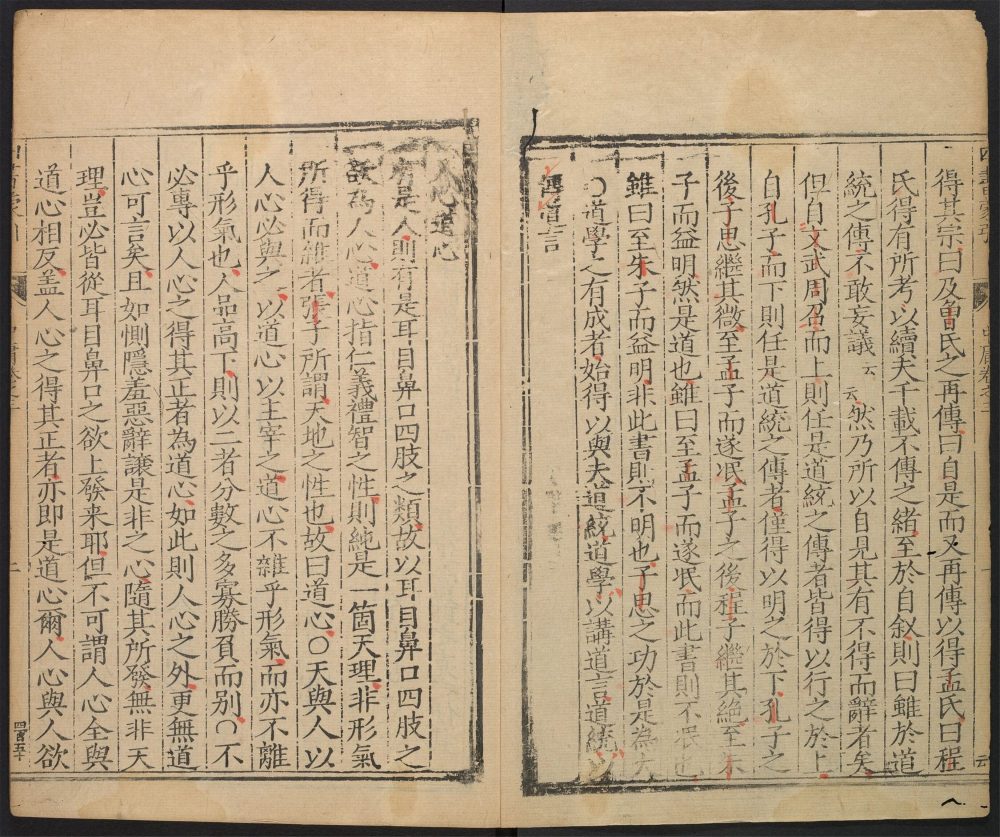 得其宗曰及曾氏之再傳曰自是而又再傳以得孟氏曰程
氏得有所考以續夫千載不傳之緒至於自叙則曰雖於道
統之傳不敢妄議云云然乃所以自見其有不得而辭者矣
但自文武周召而上則任是道統之傳者皆得以行之於上
自孔子而下則任是道統之傳者僅得以明之於下孔子之
後子思繼其微至孟子而遂泯孟子之後程子繼其絶至朱
子而益明然是道也雖曰至孟子而遂泯而此書則不泯也
雖曰至朱子而益明非此書則不明也子思之功於是為大
〇道學之有成者始得以與夫道統道學以講道言道統以
傳道言
人心道心
有是人則有是耳目鼻口四肢之類故以耳目鼻口四肢之
故為人心道心指仁義禮智之性則純是一箇天理非形氣
所得而雜者張子所謂天地之性也故曰道心〇天與人以
人心必與之以道心以主宰之道心不雜乎形氣而亦不離
乎形氣也人品高下則以二者分數之多寡勝負而别〇不
必專以人心之得其正者為道心如此則人心之外更無道
心可言矣且如惻隱羞惡辭讓是非之心隨其所發無非天
理豈必皆從耳目鼻口之欲上發来耶但不可謂人心全與
道心相反盖人心之得其正者亦即是道心爾人心與人欲